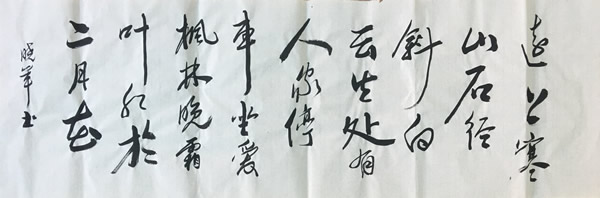 远上寒
山石径
斜白
云生处有
人家停
车坐爱
枫林晚霜
叶红於
二月花
晓军书